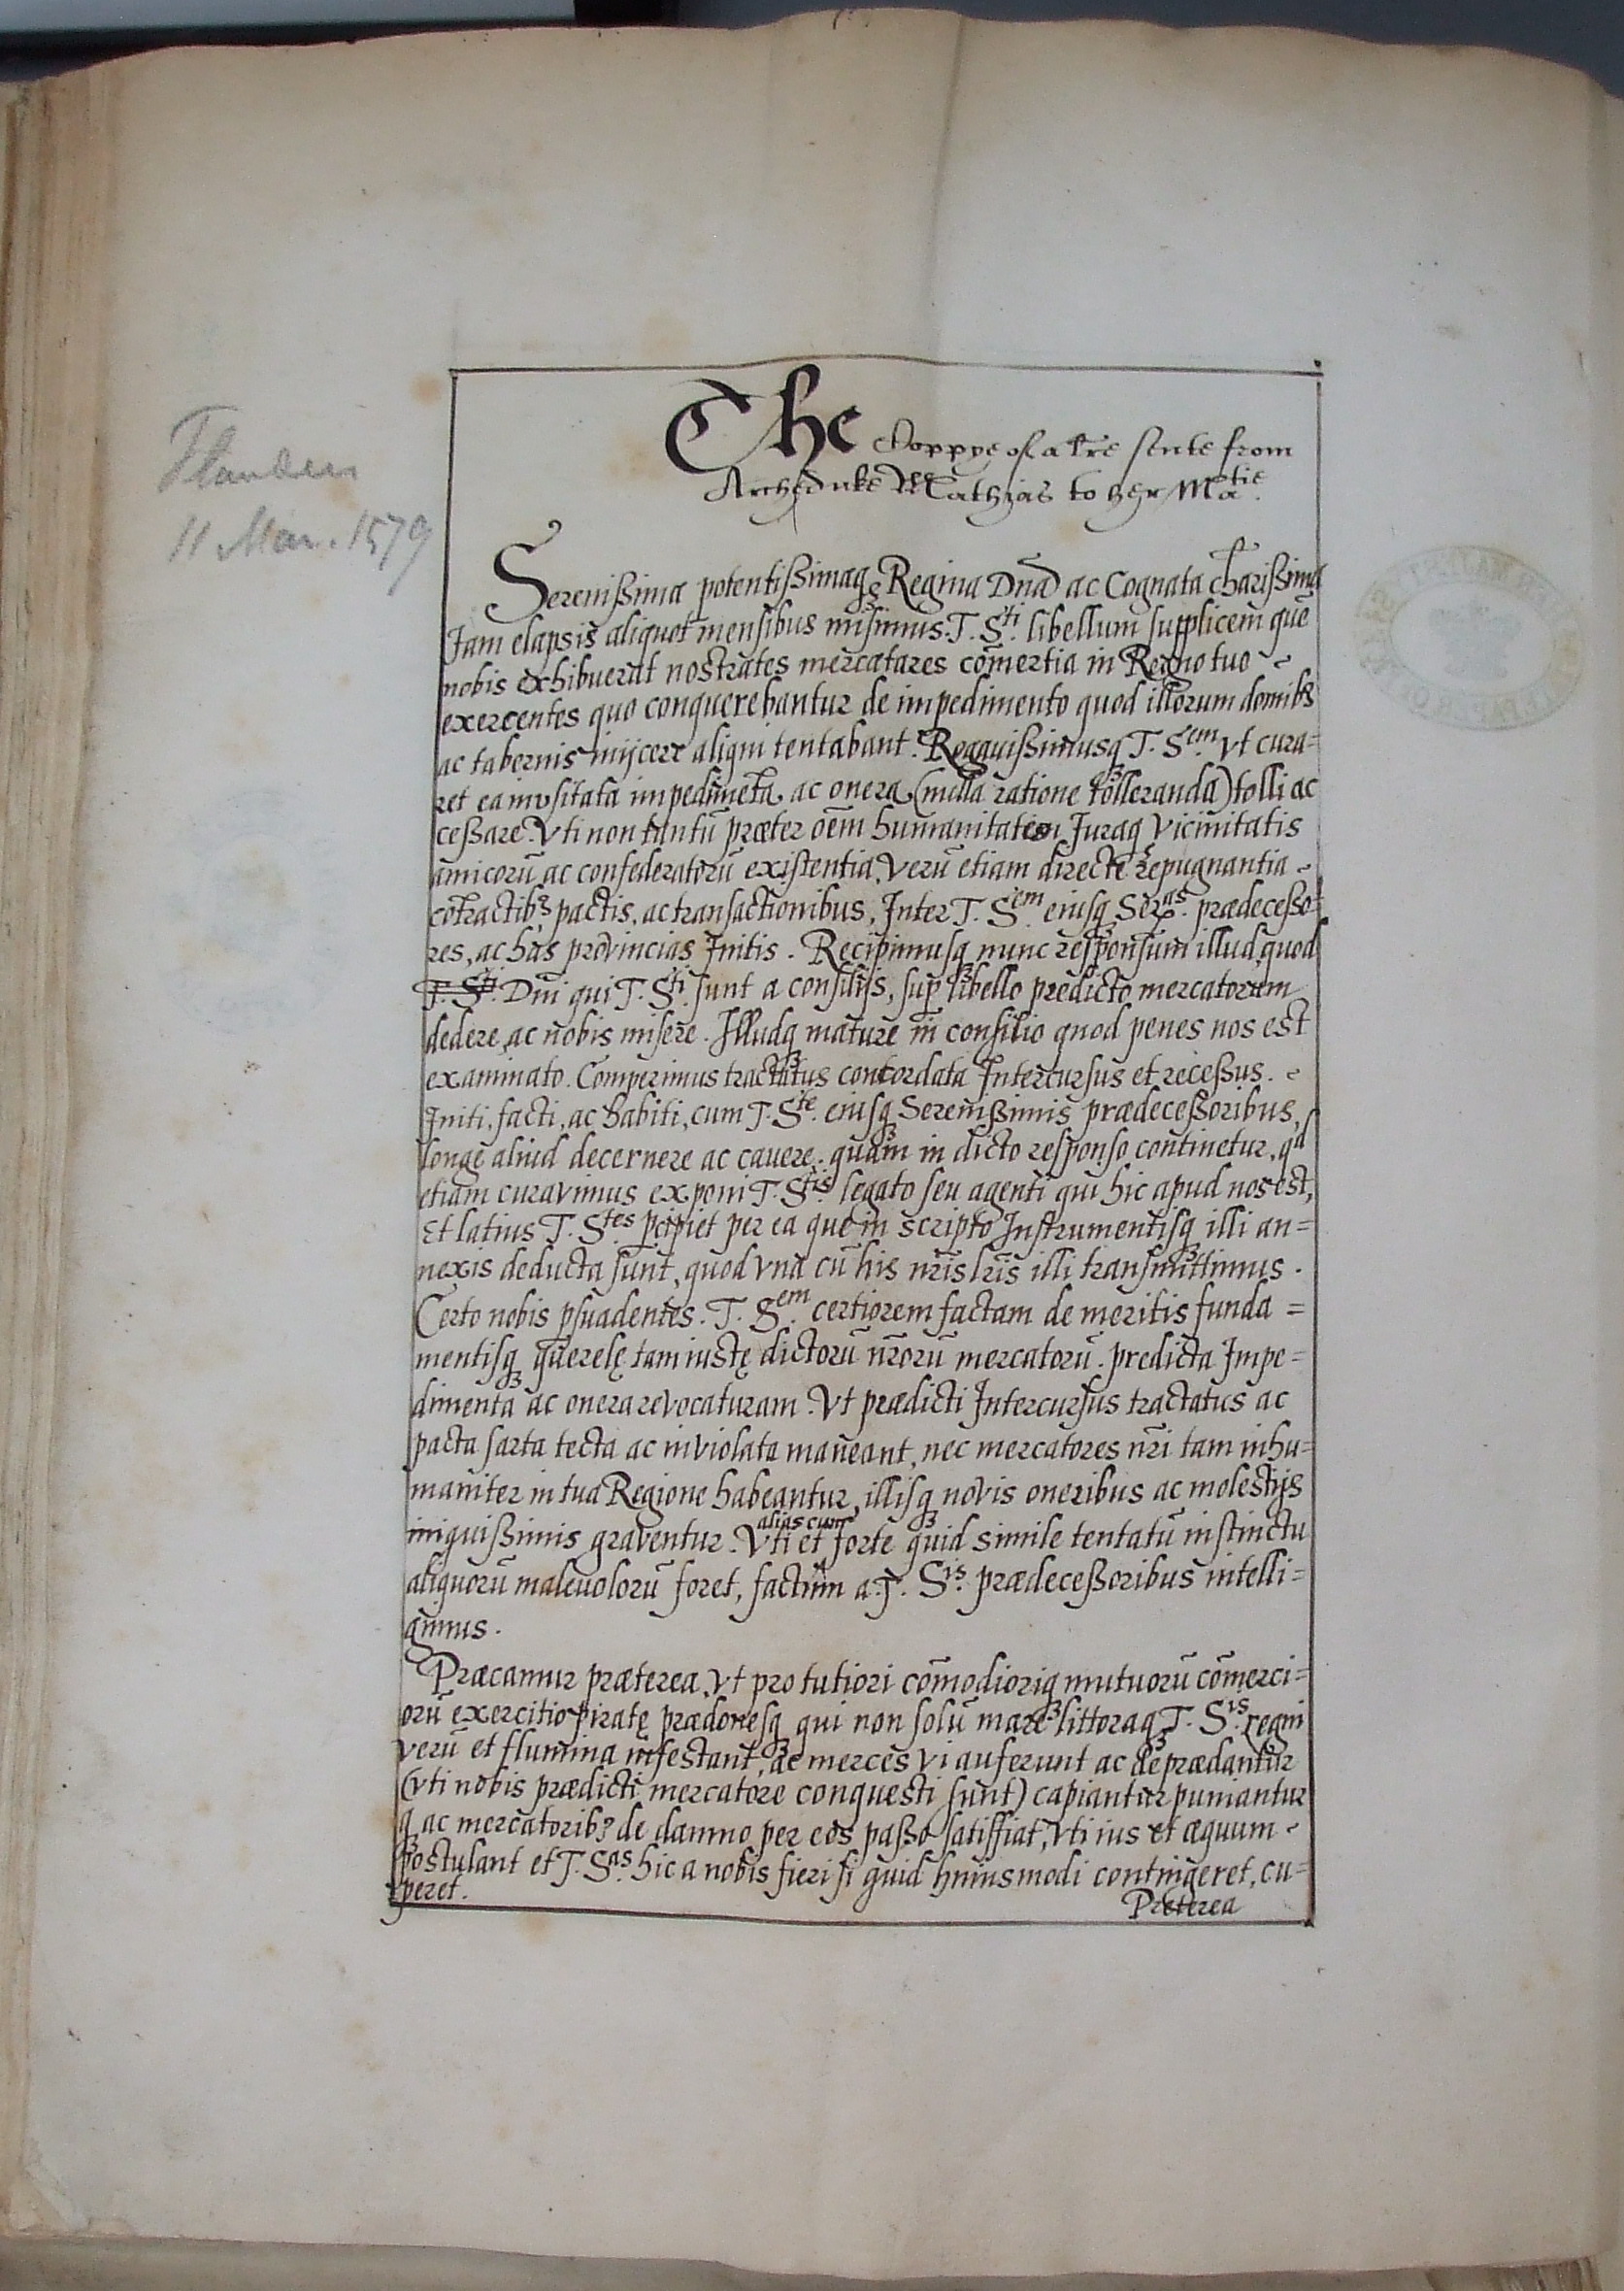 Flanders
11 Mar. 1579
The Coppye of a lrẽ sente from
Archeduke Mathias to her Matie.
Serenißima potentißimaqȝ Regina Dña ac Cognata charißima
Jam elapsis aliquot mensibus misimus. T. Sti. libellum supplicem quẽ
nobis exhibuerũt nostrates mercatores cõmertia in Regno tuo ~
exercentes quo conquerebantur de impedimento quod illorum domibꝰ
ac tabernis inijcere aliqui tentabant. Rogauißimusqȝ T. Sem. vt cura=
ret ea inusitata impedimẽta ac onera (nulla ratione tolleranda) tolli ac
ceßare. Vti non tantũ præter oẽm humanitatem Juraqȝ vicinitatis
amicorũ ac confederatorũ existentia, verũ etiam directe repugnantia ~
cõtractibꝰ, pactis, ac transactionibus, Inter T. Sem eiusqȝ Seras. prædeceßo=
res, ac has provincias Jnitis. Recipimusqȝ nunc responsum illud, quod
T. Sti. Dñi qui T. Sti. sunt a consilijs, sup libello predicto mercatorum
dedere, ac nobis misere. Jlludqȝ mature in consilio quod penes nos est
examinato. Comperimus tractatus concordata Jntercursus et receßus. ~
Jniti, facti, ac habiti, cum T. Ste. eiusqȝ Serenißimis prædeceßoribus,
longe aliud decernere ac cauere, quam in dicto responso continetur, qd
etiam curavimus exponi T. Stis. legato seu agenti qui hic apud nos est,
Et latius T. Stes pcipiet per ea que in scripto Jnstrumentisqȝ illi an=
nexis deducta sunt, quod vna cũ his nr̃is lr̃is illi transmittimus.
Certo nobis psuadentes. T. Sem. certiorem factam de meritis funda =
mentisqȝ querelę tam iustę dictorũ nr̃orũ mercatorũ. predicta Jmpe=
dimenta ac onera revocaturam. Vt prædicti Jntercursus tractatus ac
pacta sarta tecta ac inviolata maneant, nec mercatores nr̃i tam inhu=
maniter in tua Regione habeantur, illisqȝ novis oneribus ac molestijs
iniquißimis graventur. Vti et alias cum forte quid simile tentatũ instinctu
aliquorũ malevolorũ foret, factum a. T. Sis. prædeceßoribus intelli=
gimus.
Præcamur præterea, vt pro tutiori cõmodioriqȝ mutuorũ cõmerci=
orũ exercitio piratę prædonesqȝ qui non solũ mare littoraqȝ T. Sis. regni
verũ et flumina infestant, ac merces vi auferunt ac deprædantur
(vti nobis prædicti mercatore conquesti sunt) capiantur puniantur
qȝ ac mercatoribꝰ de damno per eos paßo satisfiat, vti ius et æquum ~
postulant et T. Sas. hic a nobis fieri si quid huiusmodi contingeret, cu=
peret.
Preterea